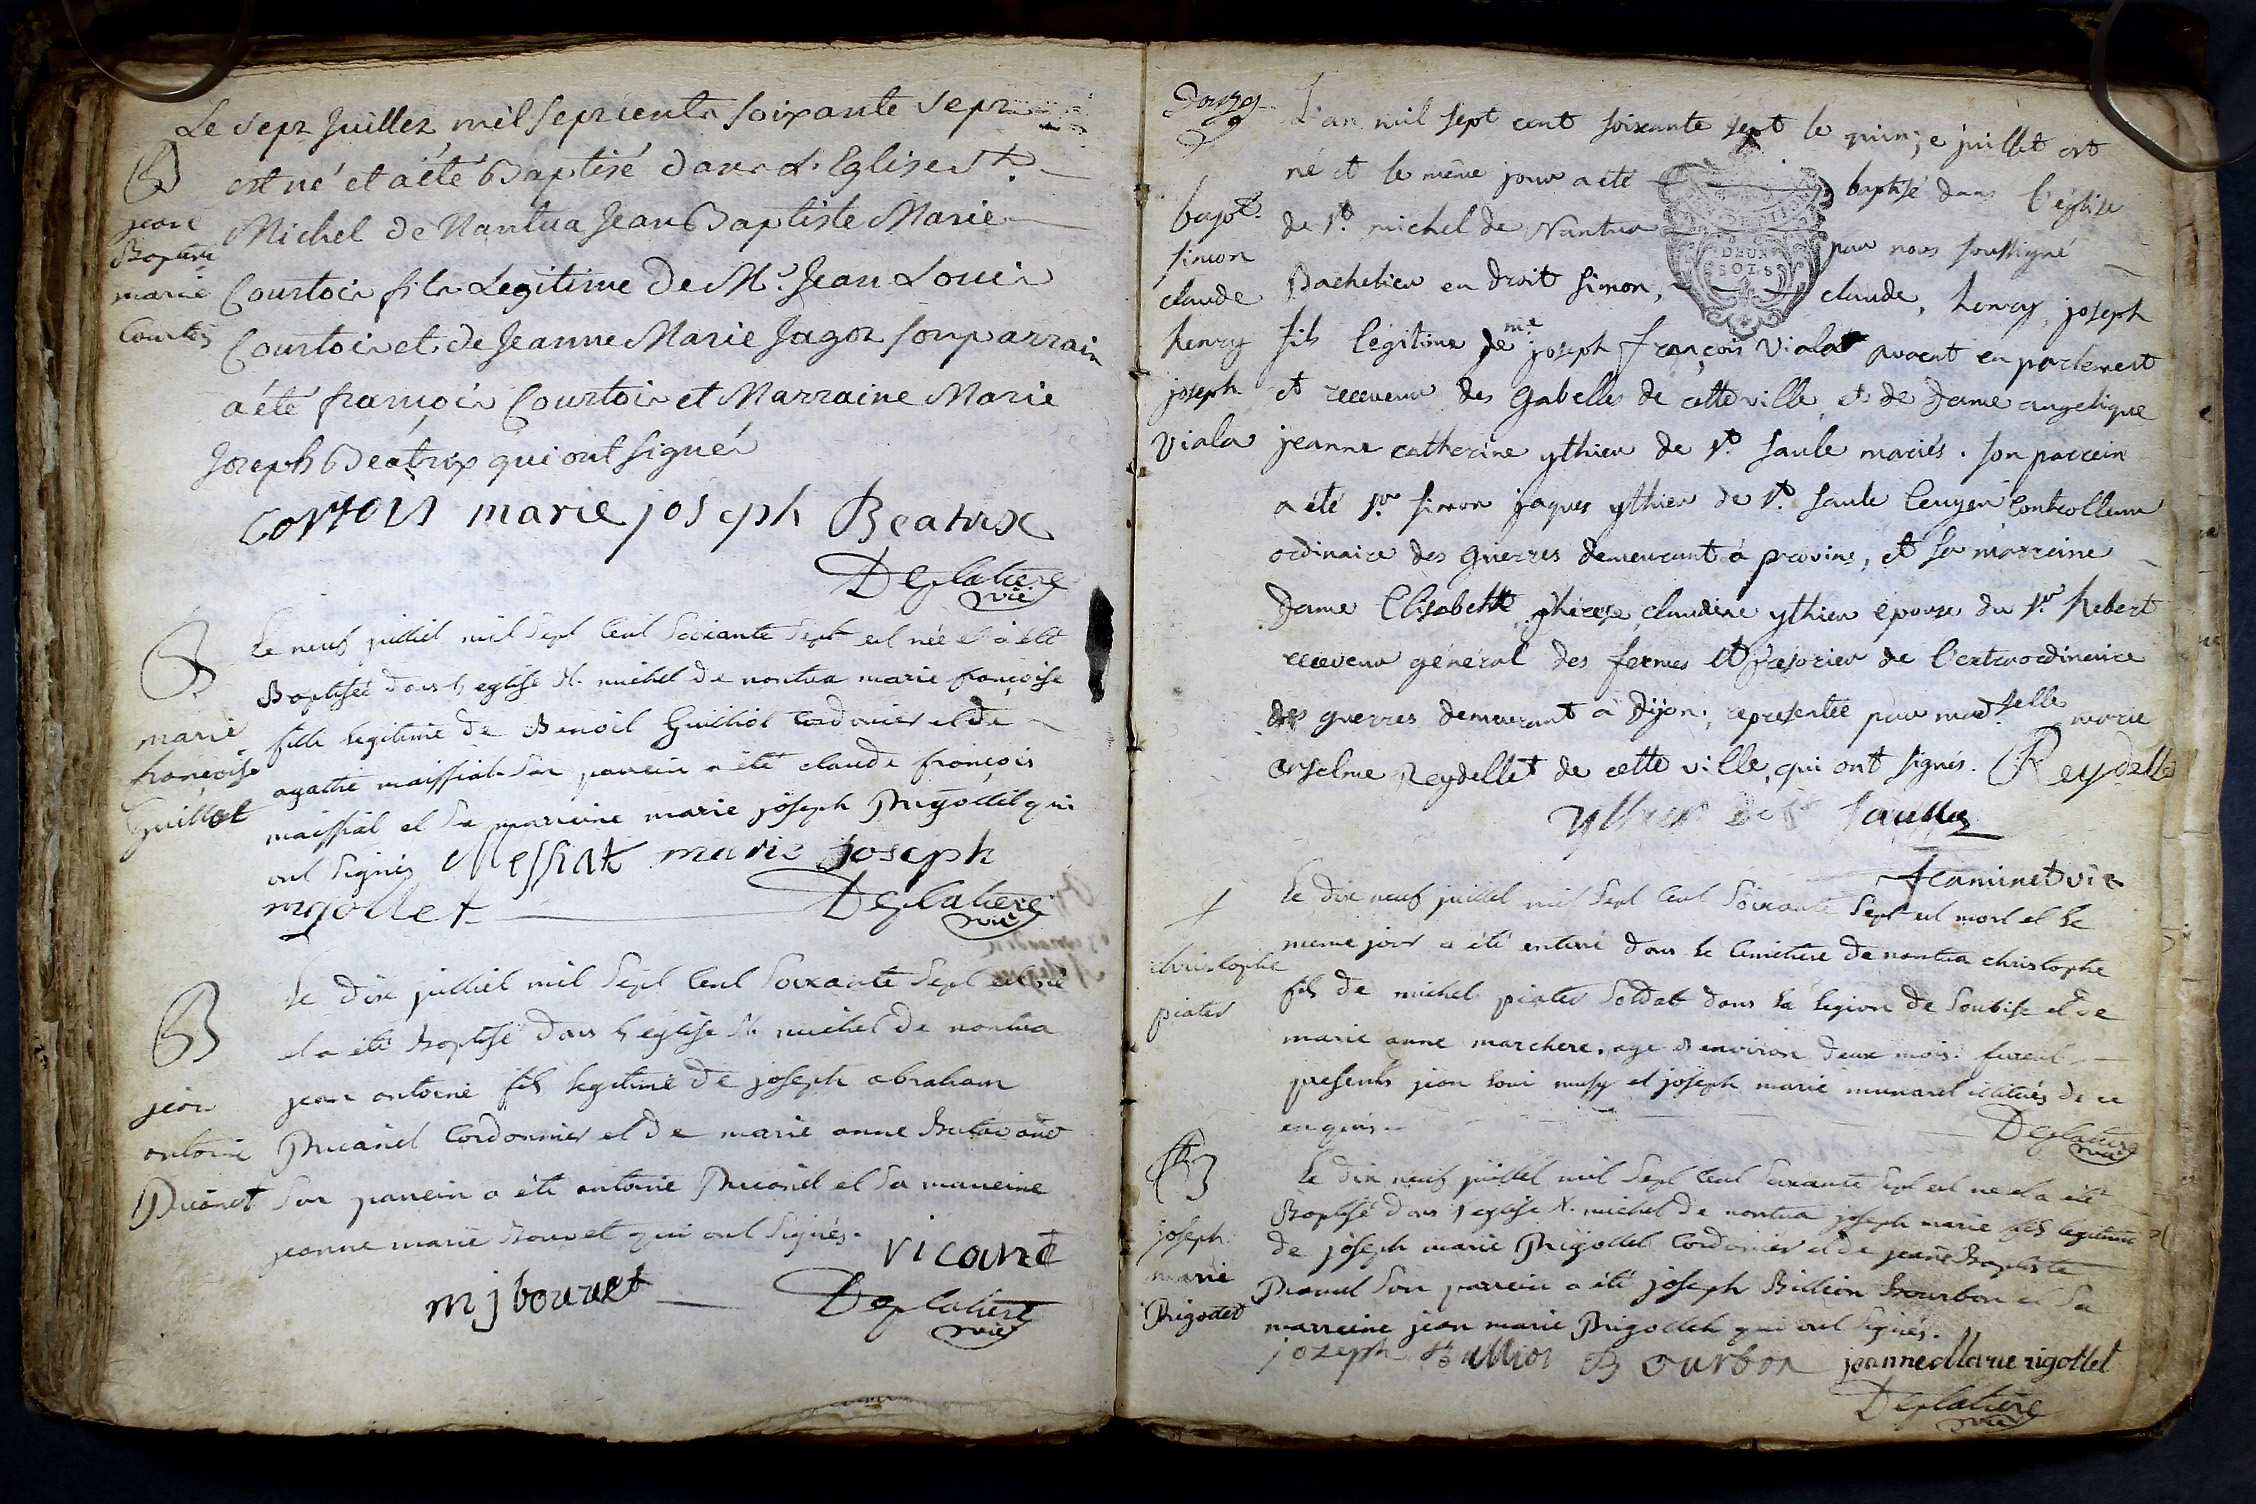 Le sept Juillet mil sept cents soixante sept
est né et a été Baptisé dans L'Eglise St.
Michel de Nantua Jean Baptiste Marie
Courtois fils Legitime De Mr. Jean Louis
Courtois et de Jeanne Marie Jagot son parrain
a été françois Courtois et Marraine Marie
Joseph Beatrix qui ont signés
B
jean
Baptiste
marie
Courtois
cortois marie joseph Beatrix
Deplatiere
vic
B
marie
françoise
Guillot
Le neuf juilliet mil Sept Cent Soixante Sept est née et a été
Baptisée dans l eglise St. michel de nantua marie françoise
fille legitime de Benoit Guilliot Cordonier et de
agathe maissiat. Son parrein a été claude françois
maissiat et Sa marreine marie joseph Brigottet qui
ont Signés Messiat marie joseph
rigollet
Deplatiere
vic
B
jean
antoine
Le dix juilliet mil Sept Cent Soixante Sept est né
et a été Baptisé dans l eglise St. michel de nantua
jean antoine fils legitime de joseph abraham
Cordonnier et de marie anne
Son parrein a été antoine et Sa marreine
jeanne marie Bouvet qui ont Signés.
vicaire
m j bouvet
Deplatiere
vic
Douzg
bapt.
simon
claude
henry
joseph
Viala
L'an mil sept cent soixante sept le quinze juillet est
né et le même jour a été baptisé dans l'église
de St. michel de Nantua par nous soussigné
DEUX
SOLS
Bachelier en droit simon, claude, henry, joseph
fils légitime de me. joseph françois Viala avocat en parlement
et receveur des Gabelles de cette ville et de Dame angelique
jeanne catherine ythier de St. saule mariés. son parrein
a été Sr. simon jaques ythier de St. saule Ecuyer Controlleur
ordinaire des guerres demeurant à provins, et sa marreine
Dame Elisabeth therese claudine ythier épouse du Sr. hebert
receveur général des fermes et trésorier de l'extraordinaire
des guerres demeurant à Dijon; représentée par madselle marie
anselme Reydellet de cette ville, qui ont signés. Reydelle
ythier de St Saulle
Jeaminet vic
christophe
piater
Le dix neuf juillet mil Sept Cent Soixante Sept est mort et le
meme jour a été enterré dans le Cimetiere de nantua christophe
fils de michel piater Soldat dans la legion de Soubise et de
marie anne marchere, age d environ deux mois. furent
presents jean loui et joseph marie de ce
enquis.
Deplatiere
vic
B
joseph
marie
Brigodet
Le dix neuf juillet mil Sept Cent Soixante Sept est né et a été
Baptisé dans l eglise St. michel de nantua joseph marie fils legitime
de joseph marie Brigottet Cordonier et de jeane Baptiste
Son parrein a été joseph Billion Bourbon et Sa
marreine jean marie Brigottet qui ont Signés.
jozeph Billion Bourbon jeanne Marie rigottet
Deplatiere
vic